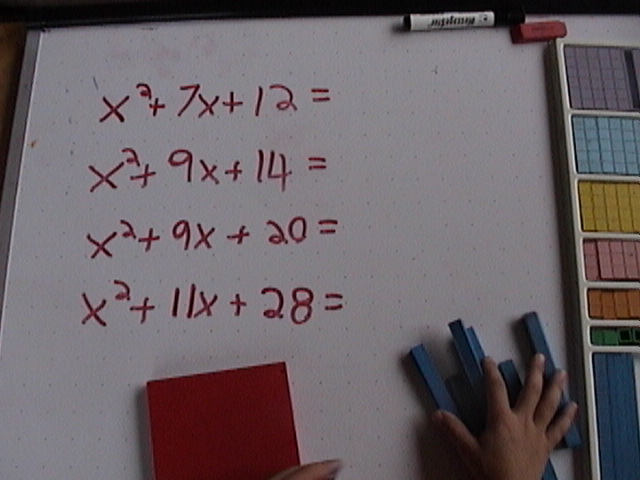 x²+ 7x+12 =
x²+ 9x+14 =
x²+ 9x + 20 =
x²+ 11x + 28 =